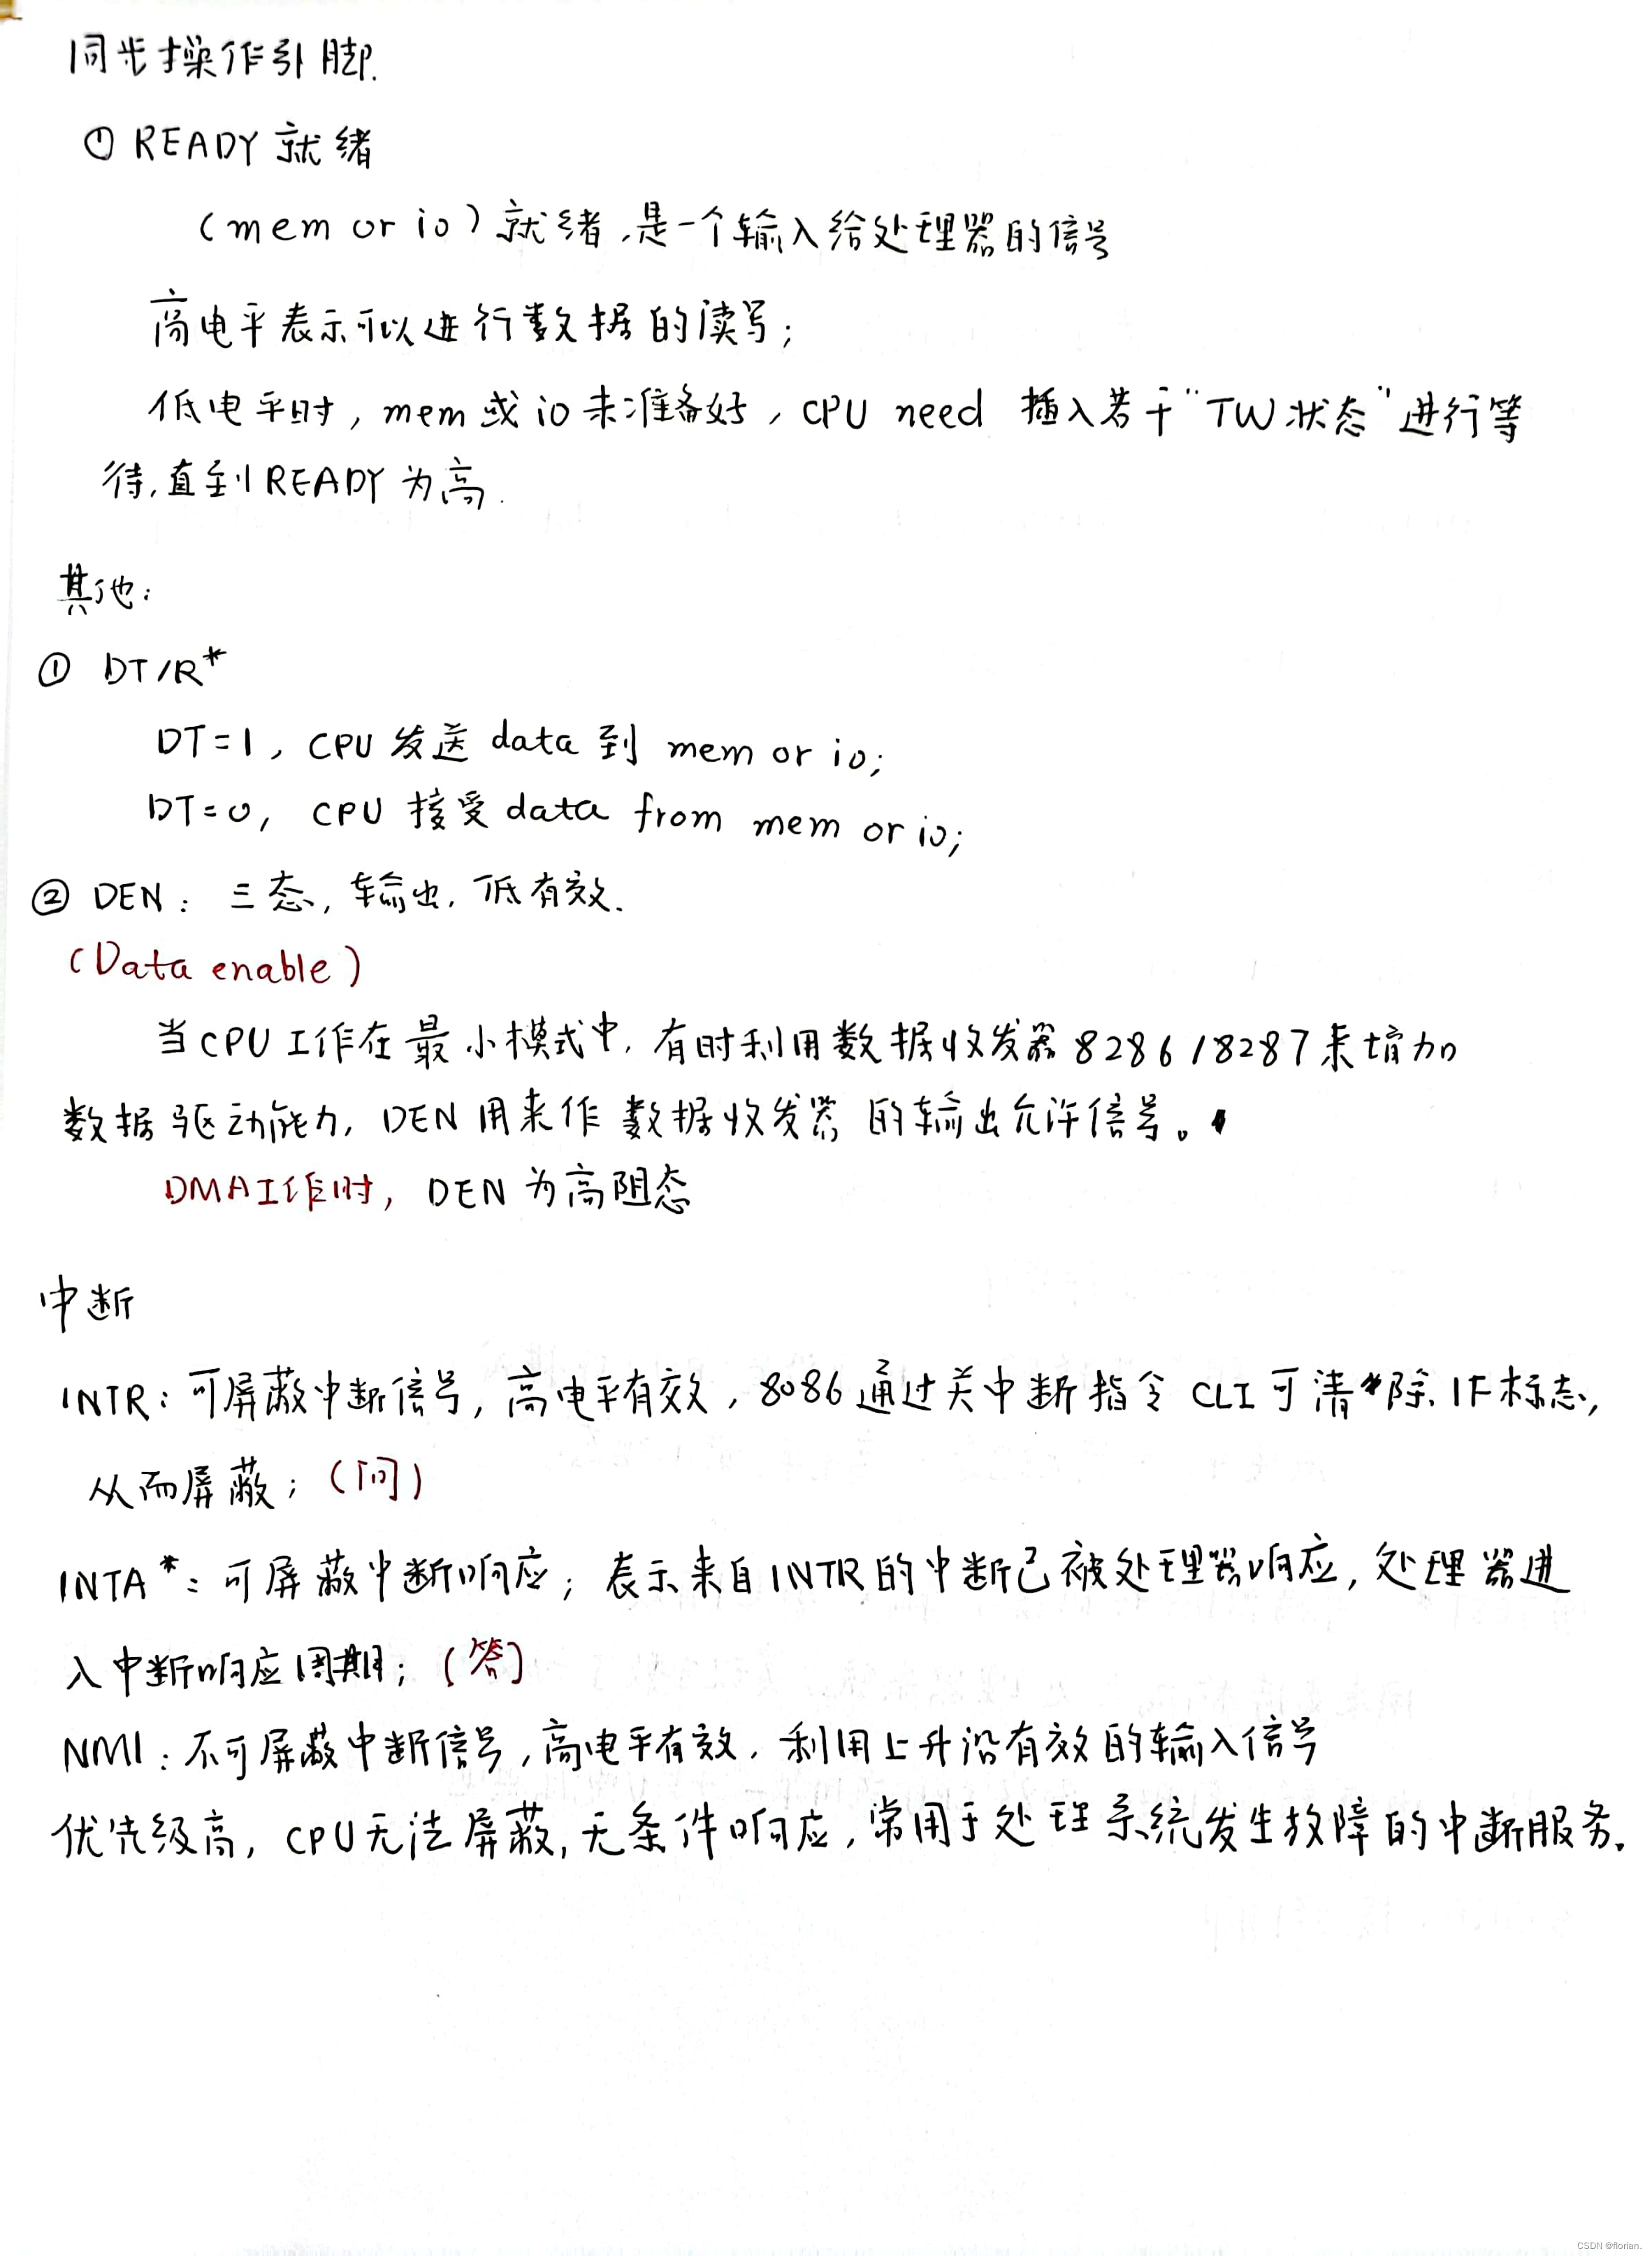 同步操作引脚.
① READY 就绪
(mem or io) 就绪,是一个输入给处理器的信号
高电平表示可以进行数据的读写;
低电平时, mem 或 io 未准备好, CPU need 插入若干“TW 状态”进行等
待,直到READY 为高.
其他:
① DT/R*
DT=1, CPU 发送 data 到 mem or io;
DT=0, CPU 接受 data from mem or io;
② DEN: 三态, 输出, 低有效.
(Data enable)
当CPU工作在最小模式中, 有时利用数据收发器8286/8287来增加
数据驱动能力, DEN 用来作数据收发器的输出允许信号。
DMA工作时, DEN 为高阻态
中断
INTR: 可屏蔽中断信号, 高电平有效, 8086通过关中断指令 CLI 可清除 IF标志,
从而屏蔽; (问)
INTA*: 可屏蔽中断响应; 表示来自INTR的中断已被处理器响应, 处理器进
入中断响应周期; (答)
NMI: 不可屏蔽中断信号, 高电平有效, 利用上升沿有效的输入信号
优先级高, CPU无法屏蔽, 无条件响应, 常用于处理系统发生故障的中断服务.
CSDN @florian.